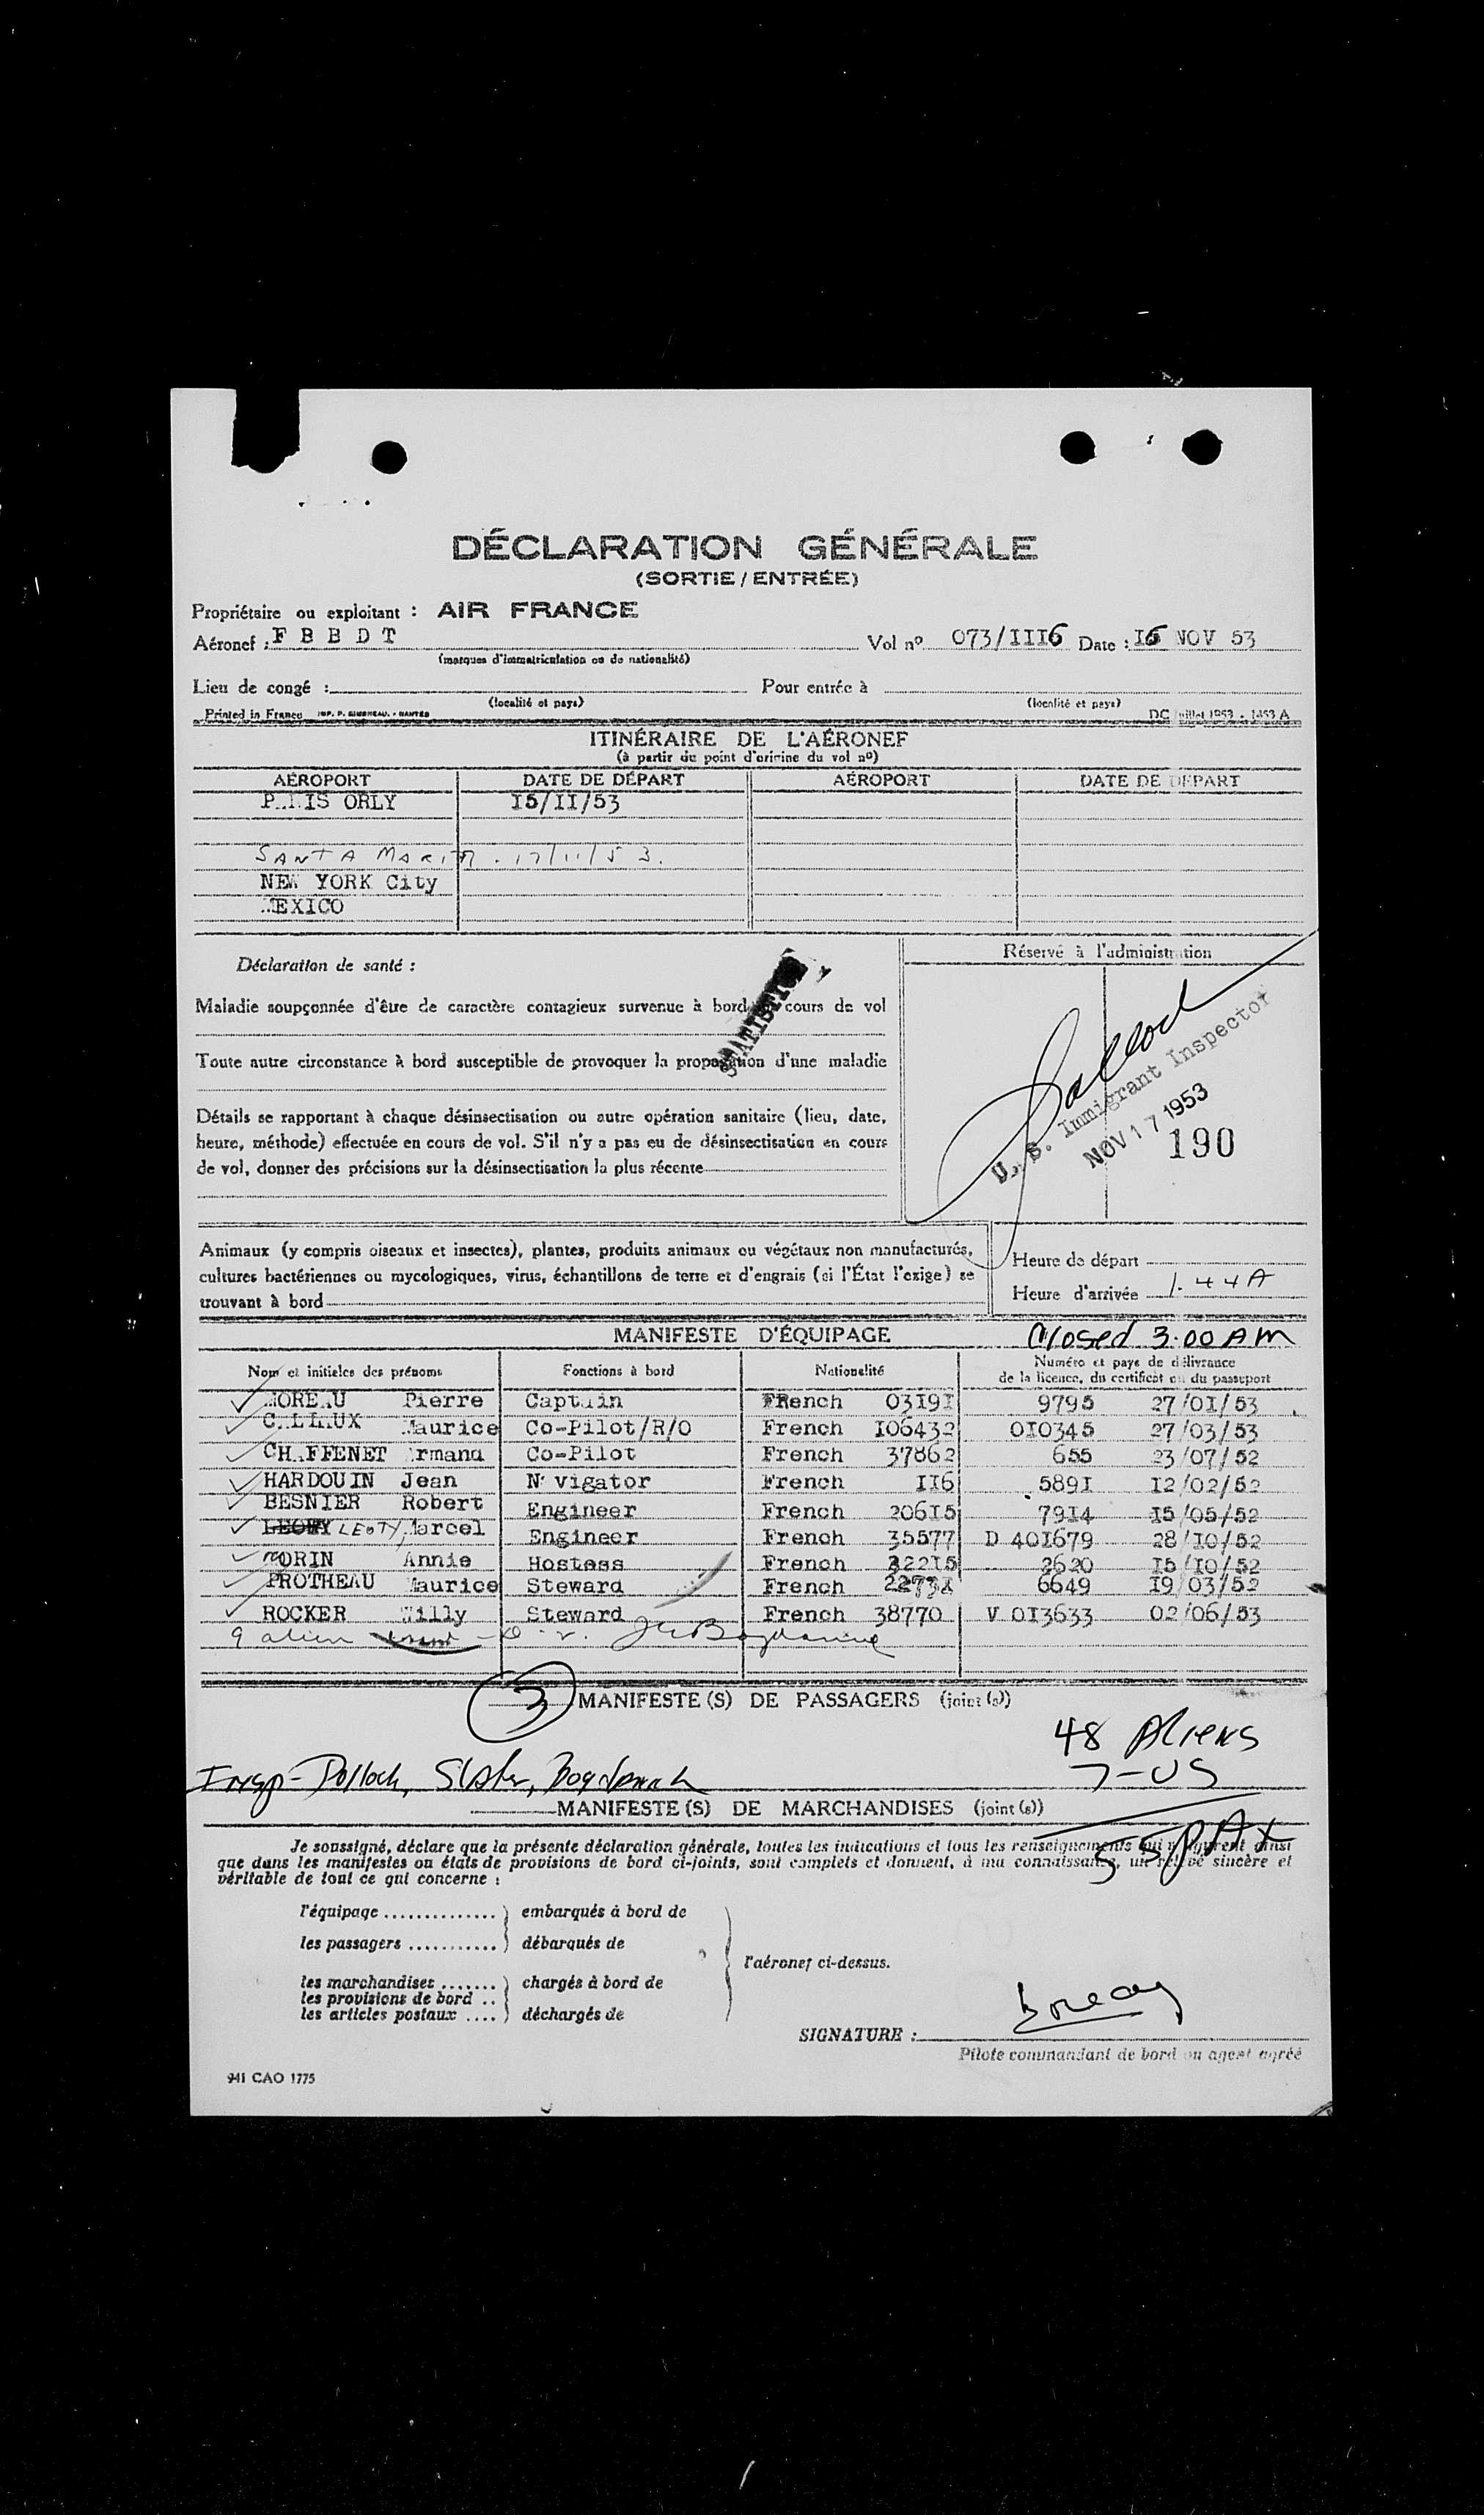 DÉCLARATION GÉNÉRALE
(SORTIE / ENTRÉE)
Propriétaire ou exploitant : AIR FRANCE
Aéronef : F B B D T Vol nº 073/III6 Date : I6 NOV 53
(marques d'immatriculation ou de nationalité)
Lieu de congé : Pour entrée à
(localité et pays) (localité et pays)
Printed in France DC juillet 1953 - 1453 A
ITINÉRAIRE DE L'AÉRONEF
(à partir du point d'origine du vol nº)
AÉROPORT DATE DE DÉPART AÉROPORT DATE DE DÉPART
PARIS ORLY I5/II/53
SANTA MARIA . 17/11/53.
NEW YORK City
MEXICO
Déclaration de santé : Réservé à l'administration
Maladie soupçonnée d'être de caractère contagieux survenue à bord cours de vol
STATISTICS
Toute autre circonstance à bord susceptible de provoquer la propagation d'une maladie
Détails se rapportant à chaque désinsectisation ou autre opération sanitaire (lieu, date,
heure, méthode) effectuée en cours de vol. S'il n'y a pas eu de désinsectisation en cours
de vol, donner des précisions sur la désinsectisation la plus récente
Pollock
U. S. Immigrant Inspector
NOV 17 1953
190
Animaux (y compris oiseaux et insectes), plantes, produits animaux ou végétaux non manufacturés,
cultures bactériennes ou mycologiques, virus, échantillons de terre et d'engrais (si l'État l'exige) se
trouvant à bord
Heure de départ
Heure d'arrivée 1.44A
MANIFESTE D'ÉQUIPAGE Closed 3:00 AM
Nom et initiales des prénoms Fonctions à bord Nationalité Numéro et pays de délivrance
de la licence, du certificat ou du passeport
MOREAU Pierre Captain FRench 03I9I 9795 27/0I/53
CAILLAUX Maurice Co-Pilot/R/O French I06432 0I0345 27/03/53
CHAFFENET Armand Co-Pilot French 37862 655 23/07/52
HARDOUIN Jean Navigator French II6 589I I2/02/52
BESNIER Robert Engineer French 206I5 79I4 I5/05/52
LEOTY Marcel Engineer French 35577 D 40I679 28/I0/52
MORIN Annie Hostess French 222I5 2620 I5/I0/52
PROTHEAU Maurice Steward French 6649 I9/03/52
ROCKER Willy Steward French 38770 V 0I3633 02/06/53
9 alien
3 MANIFESTE(S) DE PASSAGERS (joint(s))
48 Aliens
7-US
Insp- Pollock, Slater,
MANIFESTE(S) DE MARCHANDISES (joint(s))
55 PAX
Je soussigné, déclare que la présente déclaration générale, toutes les indications et tous les renseignements qui y figurent ainsi
que dans les manifestes ou états de provisions de bord ci-joints, sont complets et donnent, à ma connaissance, un relevé sincère et
véritable de tout ce qui concerne :
l'équipage .............. embarqués à bord de
les passagers ........... débarqués de
l'aéronef ci-dessus.
les marchandises ....... chargés à bord de
les provisions de bord ..
les articles postaux .... déchargés de
SIGNATURE :
Pilote commandant de bord ou agent agréé
941 CAO 1775